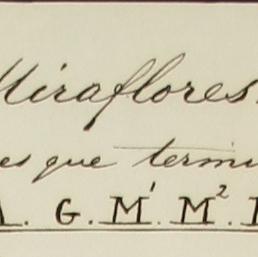 Miraflores.
es que termi
A. G. M¹. M².